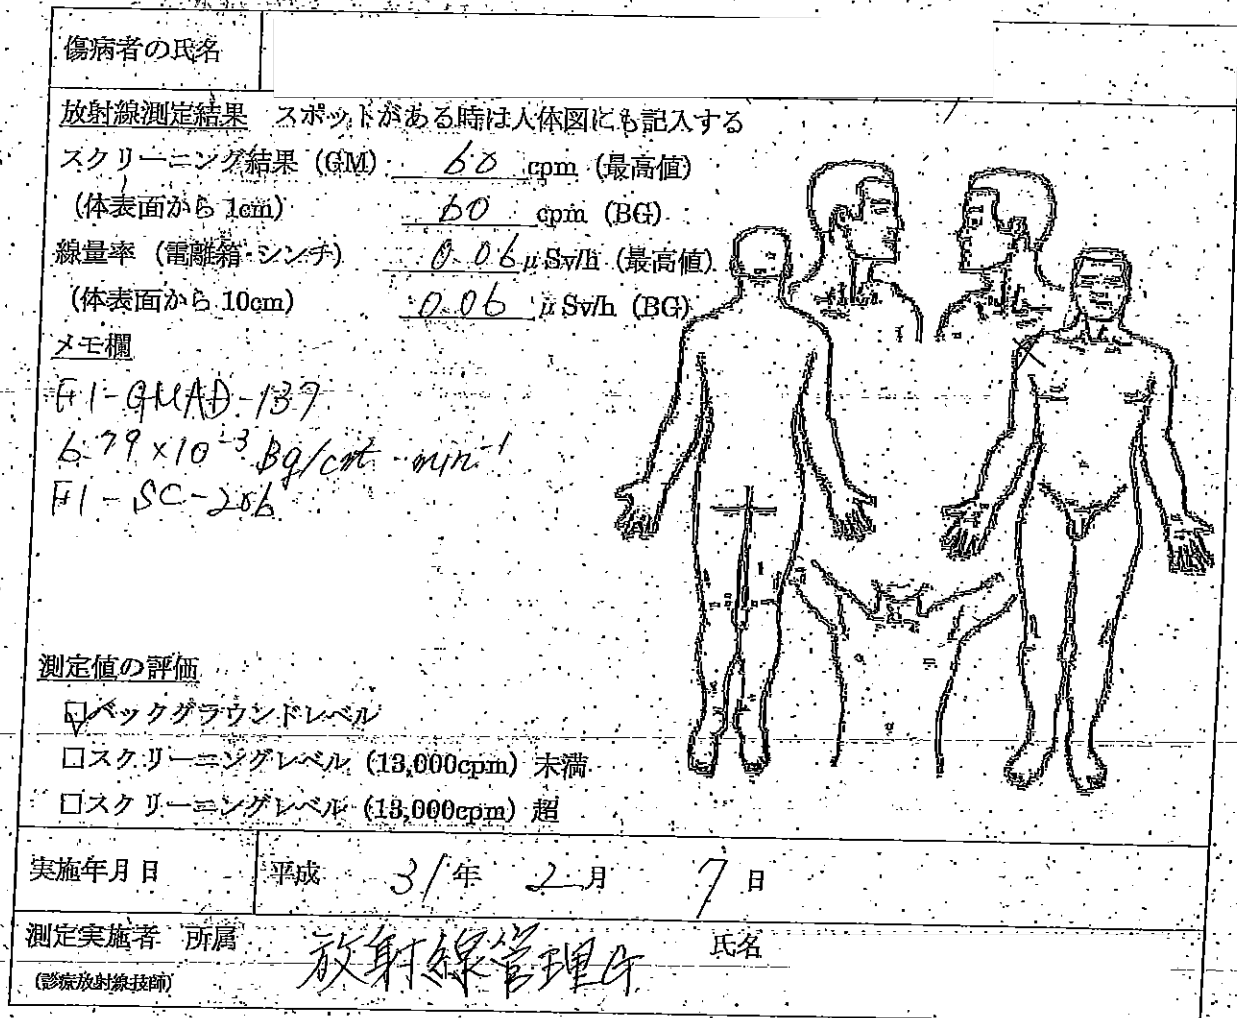 傷病者の氏名
放射線測定結果 スポットがある時は人体図にも記入する
スクリーニング結果 (GM) 60 cpm (最高値)
(体表面から 1cm) 60 cpm (BG)
線量率 (電離箱・シンチ) 0.06 μSv/h (最高値)
(体表面から 10cm) 0.06 μSv/h (BG)
メモ欄
F1-GMAD-137
6.79×10⁻³ Bq/cm² min⁻¹
F1-SC-206
測定値の評価
☑バックグラウンドレベル
□スクリーニングレベル (13,000cpm) 未満
□スクリーニングレベル (13,000cpm) 超
実施年月日 平成 31年 2月 7日
測定実施者 所属 放射線管理 氏名
(診療放射線技師)